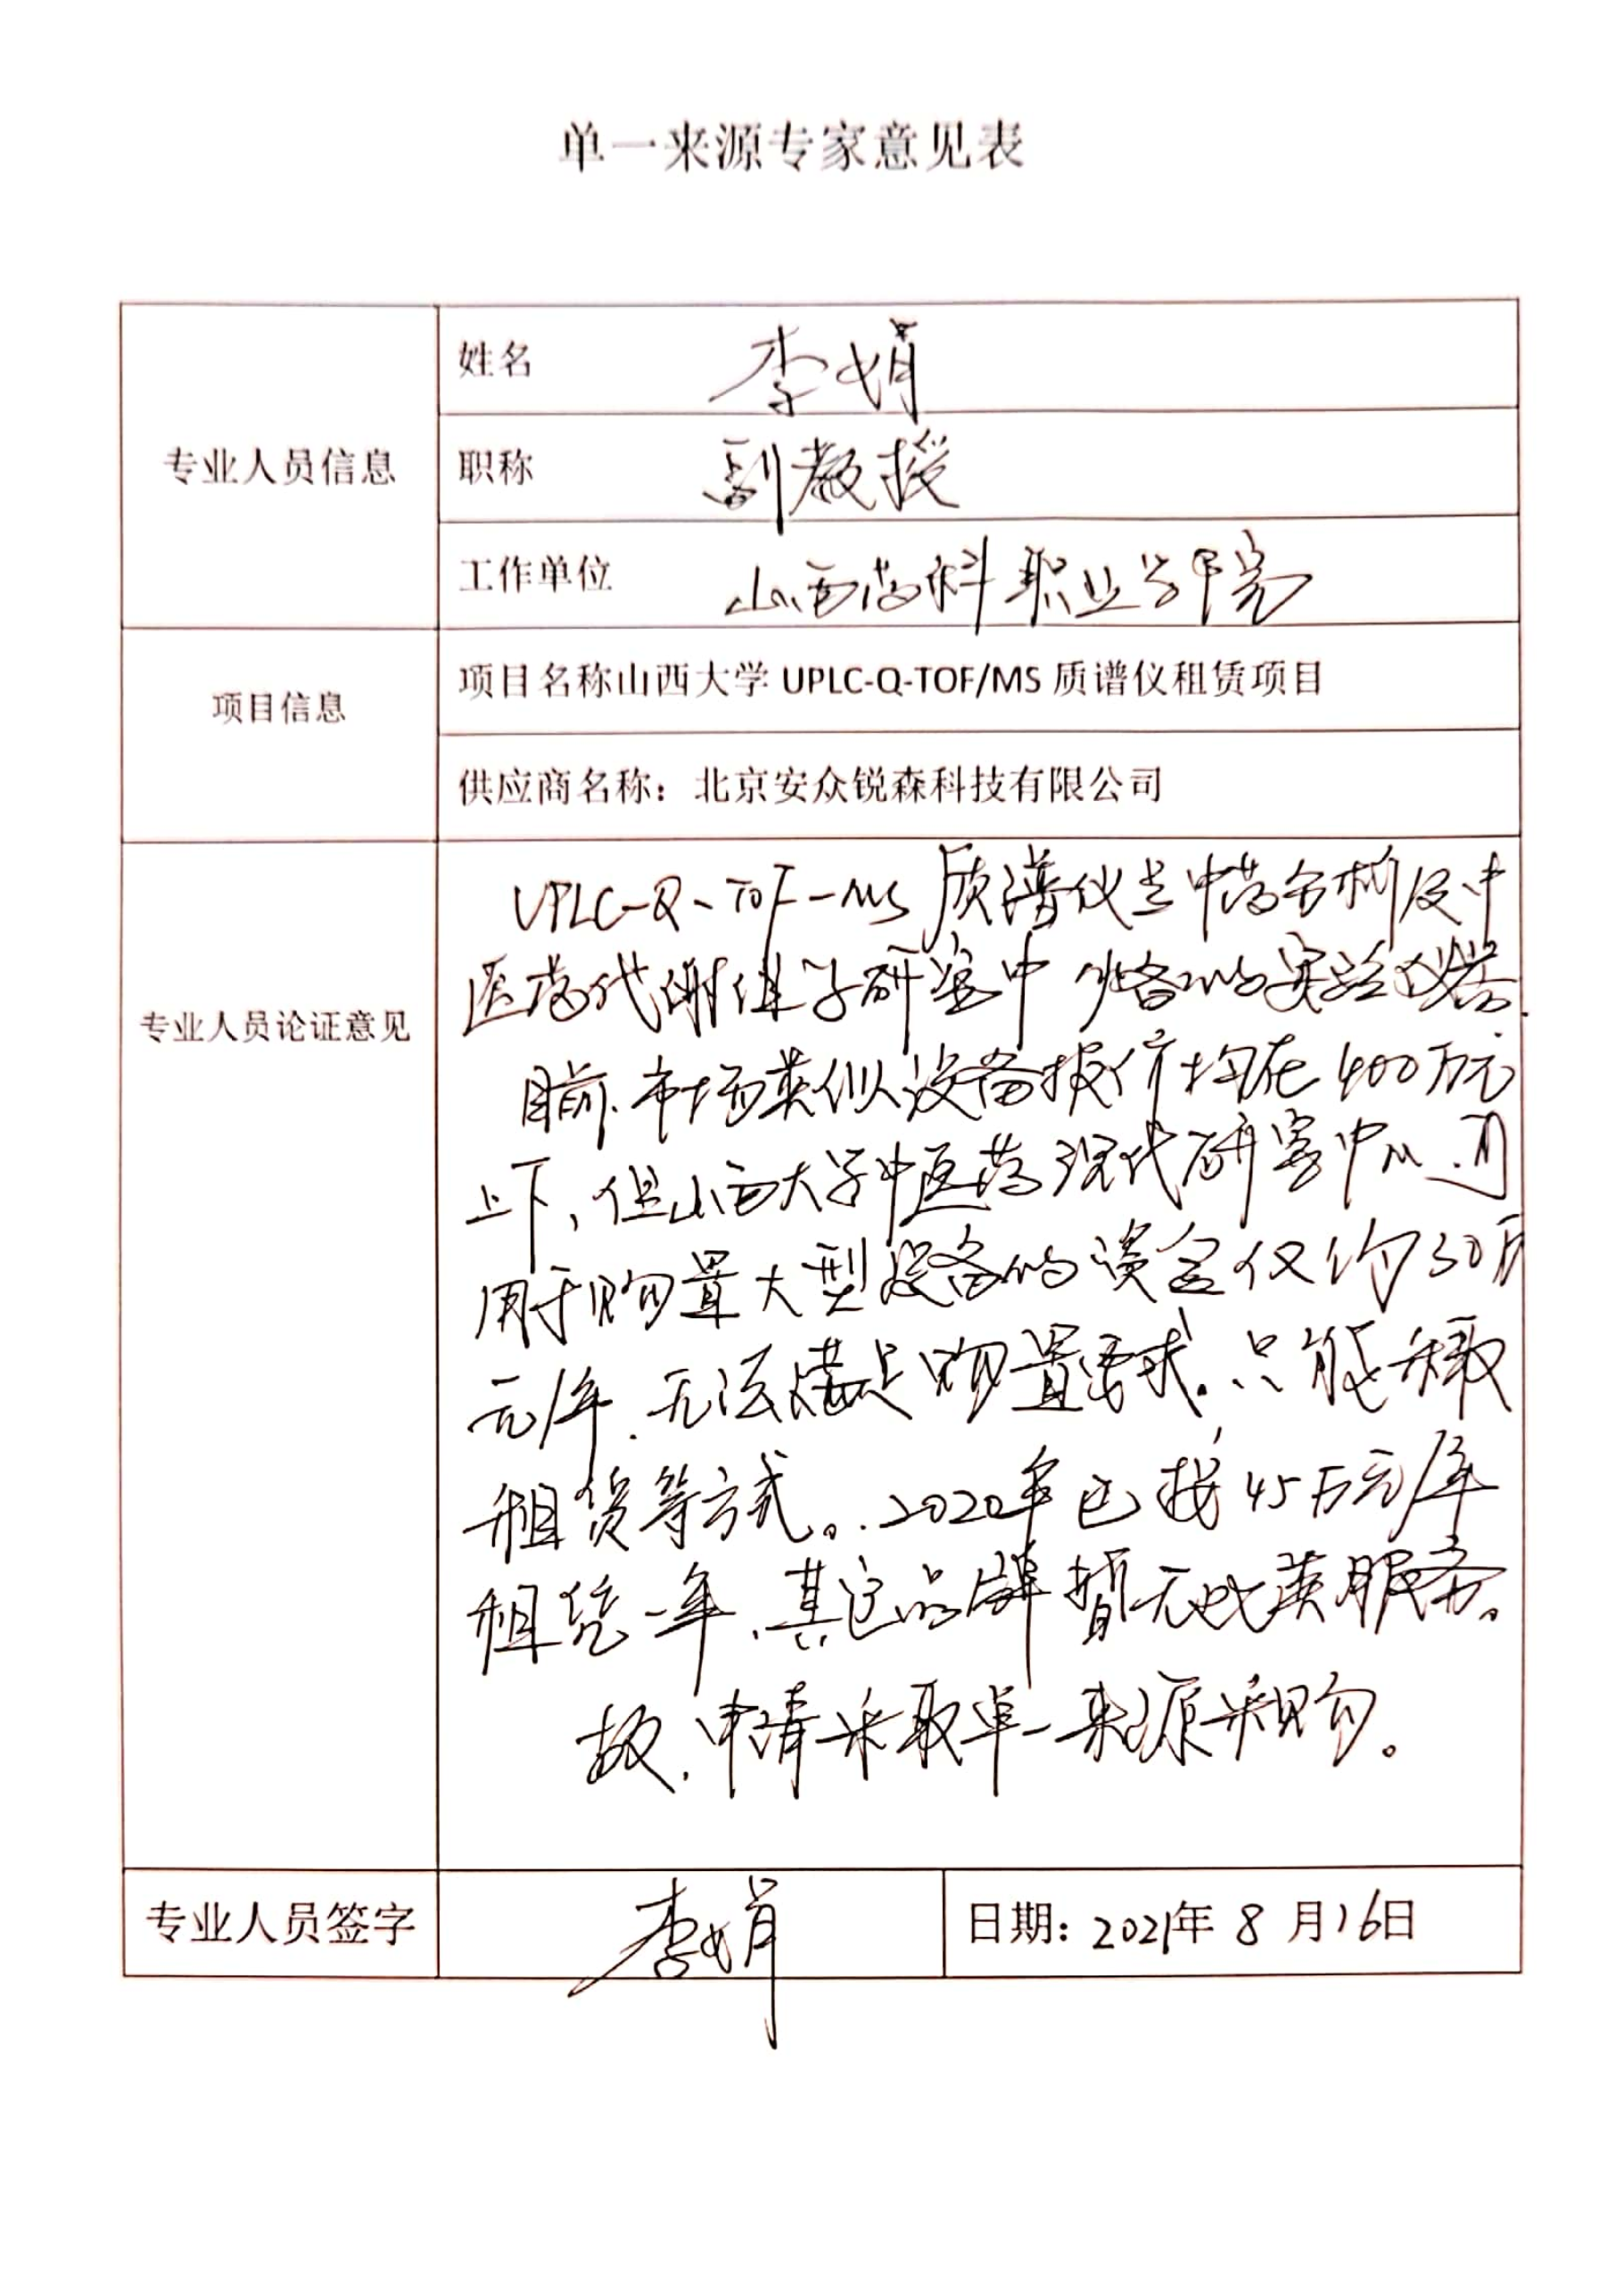 单一来源专家意见表
专业人员信息
姓名 李娟
职称 副教授
工作单位 山西药科职业学院
项目信息
项目名称山西大学 UPLC-Q-TOF/MS 质谱仪租赁项目
供应商名称：北京安众锐森科技有限公司
专业人员论证意见
UPLC-Q-TOF-MS 质谱仪是中药分析及中
医药代谢组学研究中必备的实验仪器.
目前,市场类似设备报价均在400万元
上下,但山西大学中医药现代研究中心可
用于购置大型设备的资金仅约30万
元/年.无法满足购置需求.只能采取
租赁等方式。2020年已按45万元/年
租赁一年,其它品牌暂无此类服务。
故,申请采取单一来源采购。
专业人员签字
李娟
日期：2021年 8 月16日